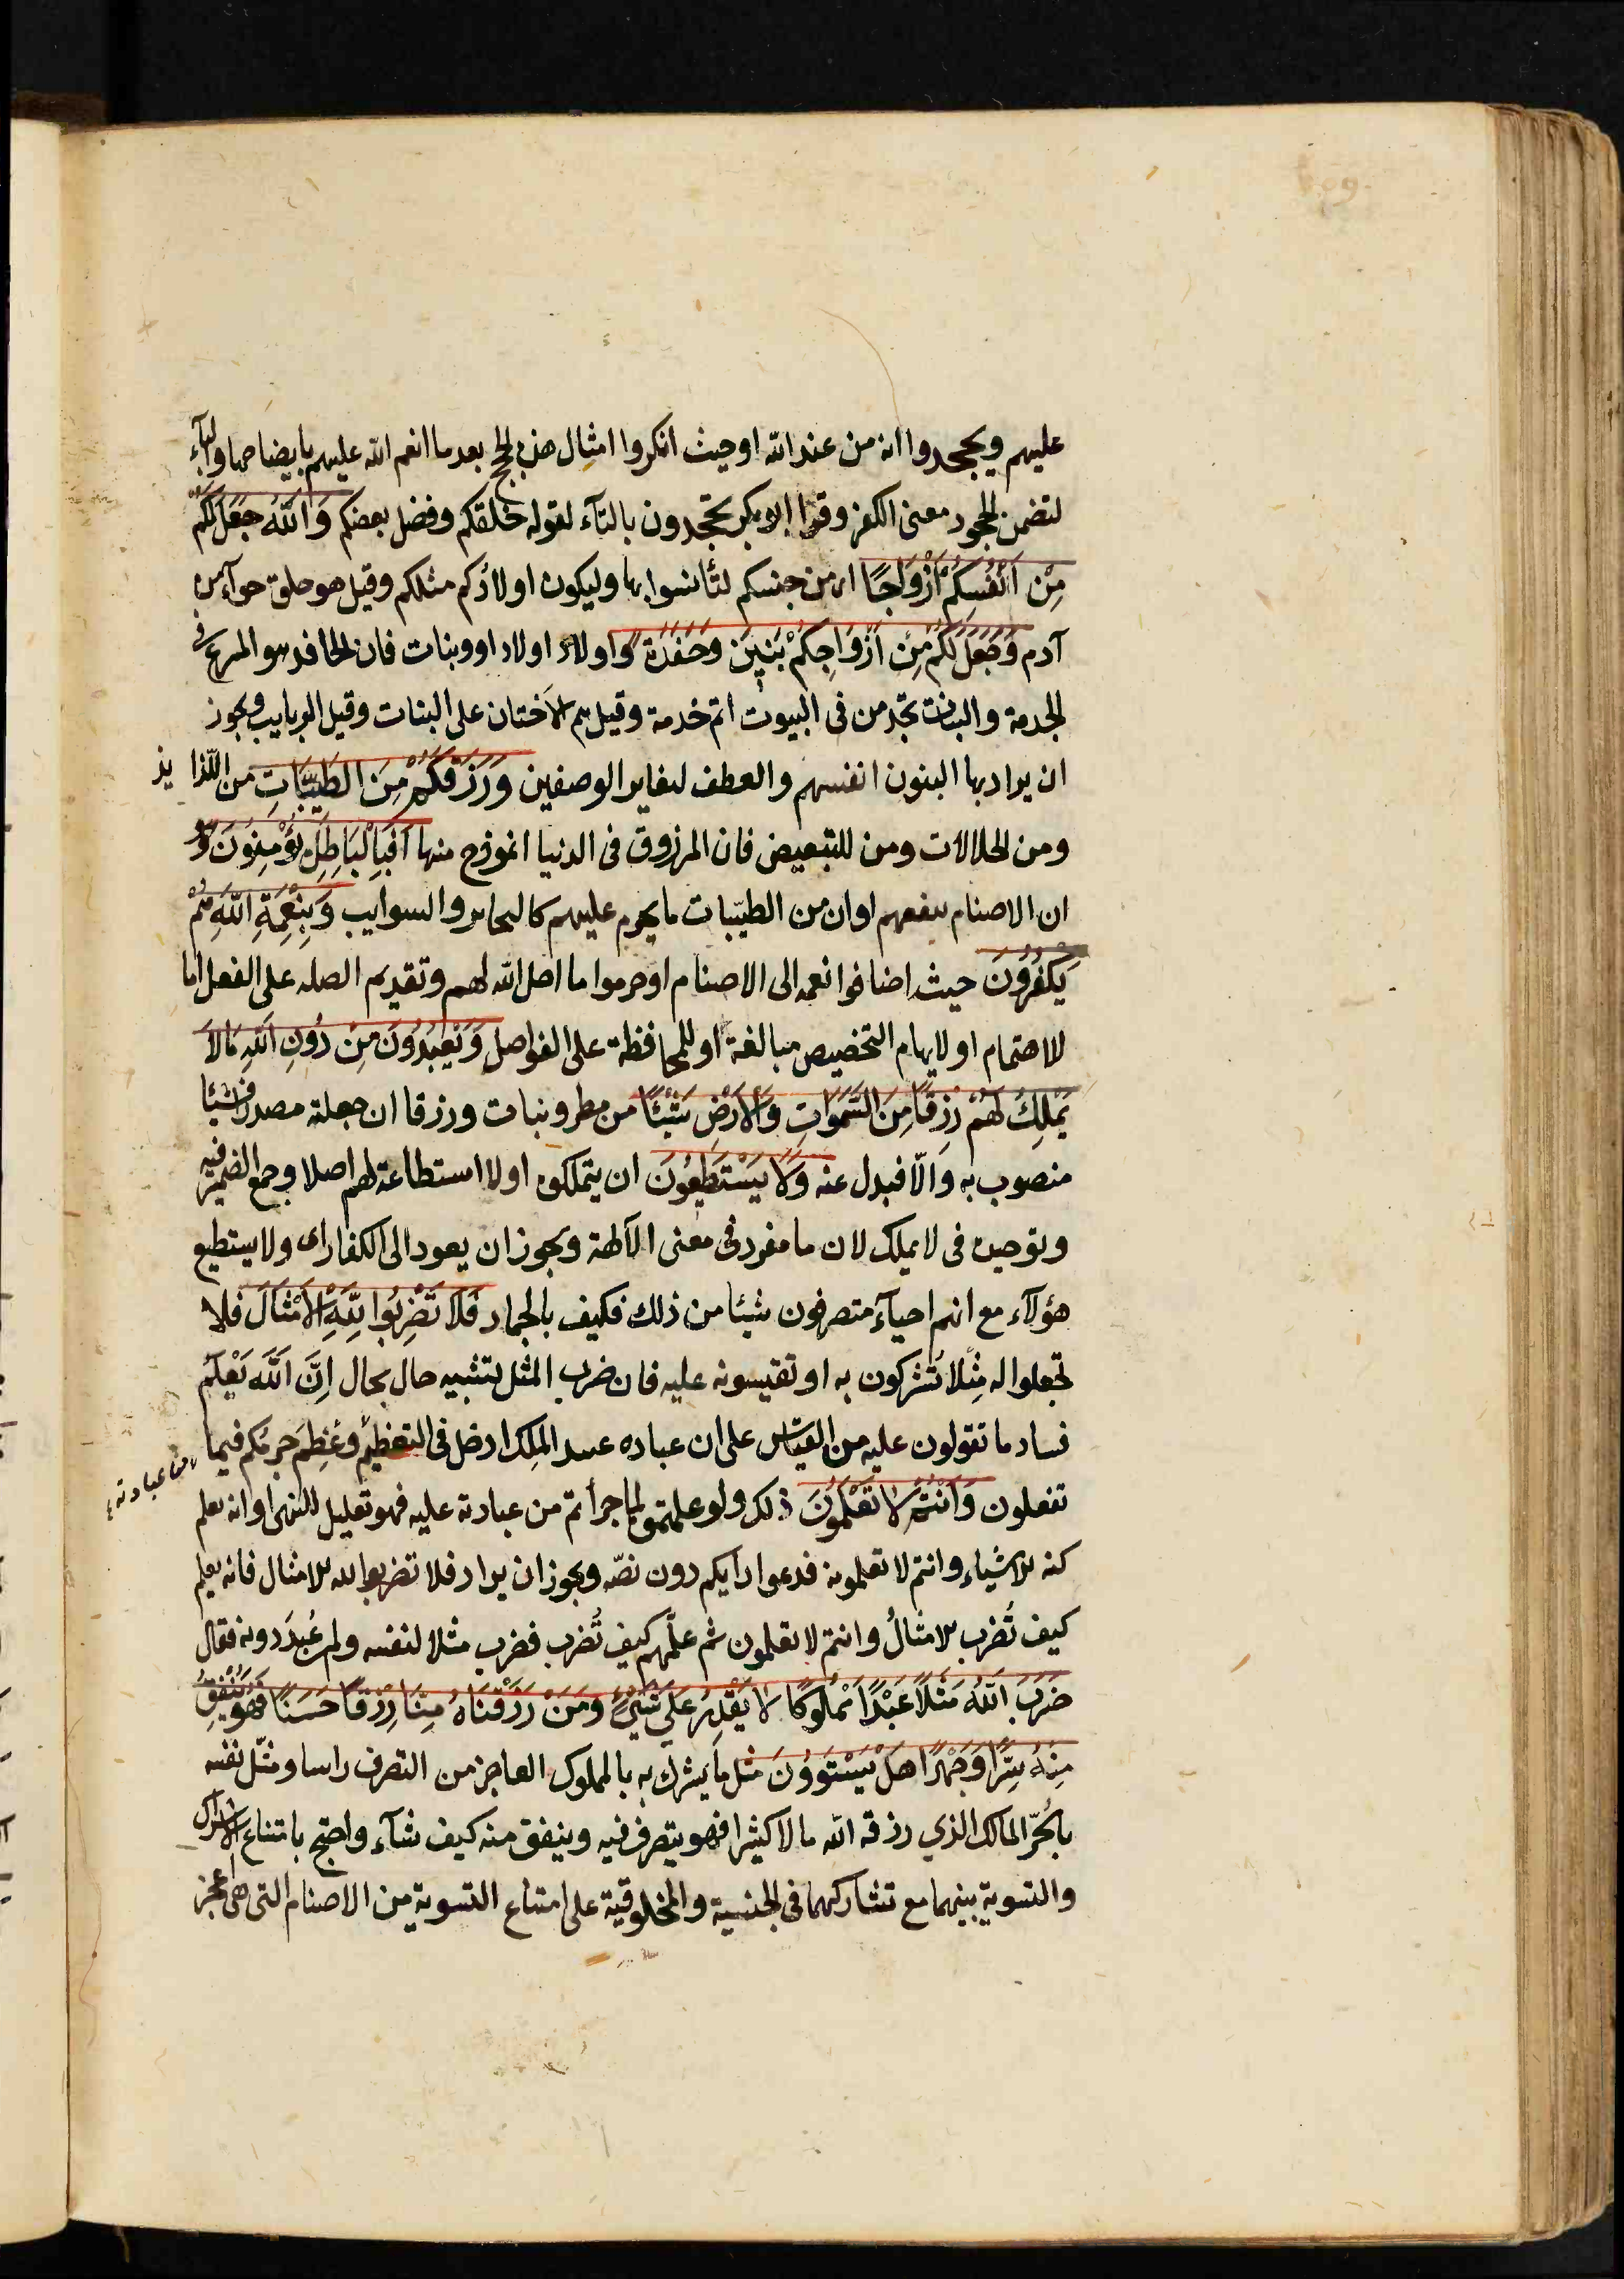 عليهم ويجحدوا انه من عند الله او حيث انكروا امثال هذه الحجج بعد ما انعم الله عليهم بايضاحها والباء
لتضمن الجحود معنى الكفر وقرا ابو بكر تجحدون بالتآء لقوله خلقكم وفضل بعضكم وَاللّٰهُ جَعَلَ لَكُمْ
مِنْ اَنْفُسِكُمْ اَزْوَاجًا اى من جنسكم لتأنسوا بها وليكون اولادكم مثلكم وقيل هو خلق حوآء من
آدم وَجَعَلَ لَكُمْ مِنْ اَزْوَاجِكُمْ بَنِينَ وَحَفَدَةً واولاد اولاد او وبنات فان الحافد هو المسرع فى
الخدمة والبنات تخدمن فى البيوت اتم خدمة وقيل هم الاَختان على البنات وقيل الربايب ويجوز
ان يراد بها البنون انفسهم والعطف لتغاير الوصفين وَرَزَقَكُمْ مِنَ الطَّيِّبَاتِ من اللّذايذ
ومن الحلالات ومن للتبعيض فان المرزوق فى الدنيا انموذج منها اَفَبِالْبَاطِلِ يُؤْمِنُونَ وهو
ان الاصنام تنفعهم او ان من الطيّبات ما يحرم عليهم كالبحاير والسوايب وَبِنِعْمَةِ اللّٰهِ هُمْ
يَكْفُرُونَ حيث اضافوا نعمه الى الاصنام او حرموا ما احل الله لهم وتقديم الصله على الفعل اما
للاهتمام او لايهام التخصيص مبالغة او للمحافظة على الفواصل وَيَعْبُدُونَ مِنْ دُونِ اللّٰهِ مَالاَ
يَمْلِكُ لَهُمْ رِزْقًا مِنَ السَّمَوَاتِ وَالْاَرْضِ شَيْئًا من مطر ونبات ورزقا ان جعلته مصدرا فشيئا
منصوب به وَالّا فبدل عنه وَلَا يَسْتَطِيعُونَ ان يتملكوه او لا استطاعة لهم اصلا وجمع الضمير فيه
وتوحيده فى لا يملك لان ما مفرد فى معنى الآلهة ويجوز ان يعود الى الكفار اى ولا يستطيع
هؤلآء مع انهم احيآء متصرفون شيئا من ذلك فكيف بالجماد فَلَا تَضْرِبُوا لِلّٰهِ الاَمْثَالَ فلا
تجعلوا له مِثلا تُشركون به او تقيسونه عليه فان ضرب المثل تشبيه حال بحال اِنَّ اللّٰهَ يَعْلَمُ
فساد ما تقولون عليه من القياس على ان عباده عبيد الملِك ادخل فى التعظيم وعُظِمَ جرمكم فيما
تفعلون وَاَنْتُمْ لَا تَعْلَمُونَ ذلك ولو علمتموه لما جرأتم من عبادته عليه فهو تعليل للنهى او انه يعلم
كنه الاشياء وانتم لا تعلمونه فدعوا رايكم دون نصّه ويجوز ان يراد فلا تضربوا لله الامثال فانه يعلم
كيف تُضرب الامثالُ وانتم لا تعلمون ثم علّمهم كيف تُضرب فضرب مثلا لنفسه ولمن عُبِدَ دونه فقال
ضَرَبَ اللّٰهُ مَثَلًا عَبْدًا مَمْلُوكًا لَا يَقْدِرُ عَلَى شَيْءٍ وَمَنْ رَزَقْنَاهُ مِنَّا رِزْقًا حَسَنًا فَهُوَ يُنْفِقُ
مِنْهُ سِرًّا وَجَهْرًا هَلْ يَسْتَوُونَ مثل ما يشرك به بالمملوك العاجز من التصرف راسا ومثّل نفسه
بالحُرّ المالك الذي رزقه الله مالا كثيرا فهو يتصرف فيه وينفق منه كيف شآء واحتج بامتناع الاشراك
والتسوية بينهما مع تشاركهما فى الجنسية والمخلوقية على امتناع التسوية من الاصنام التى هى اعجز